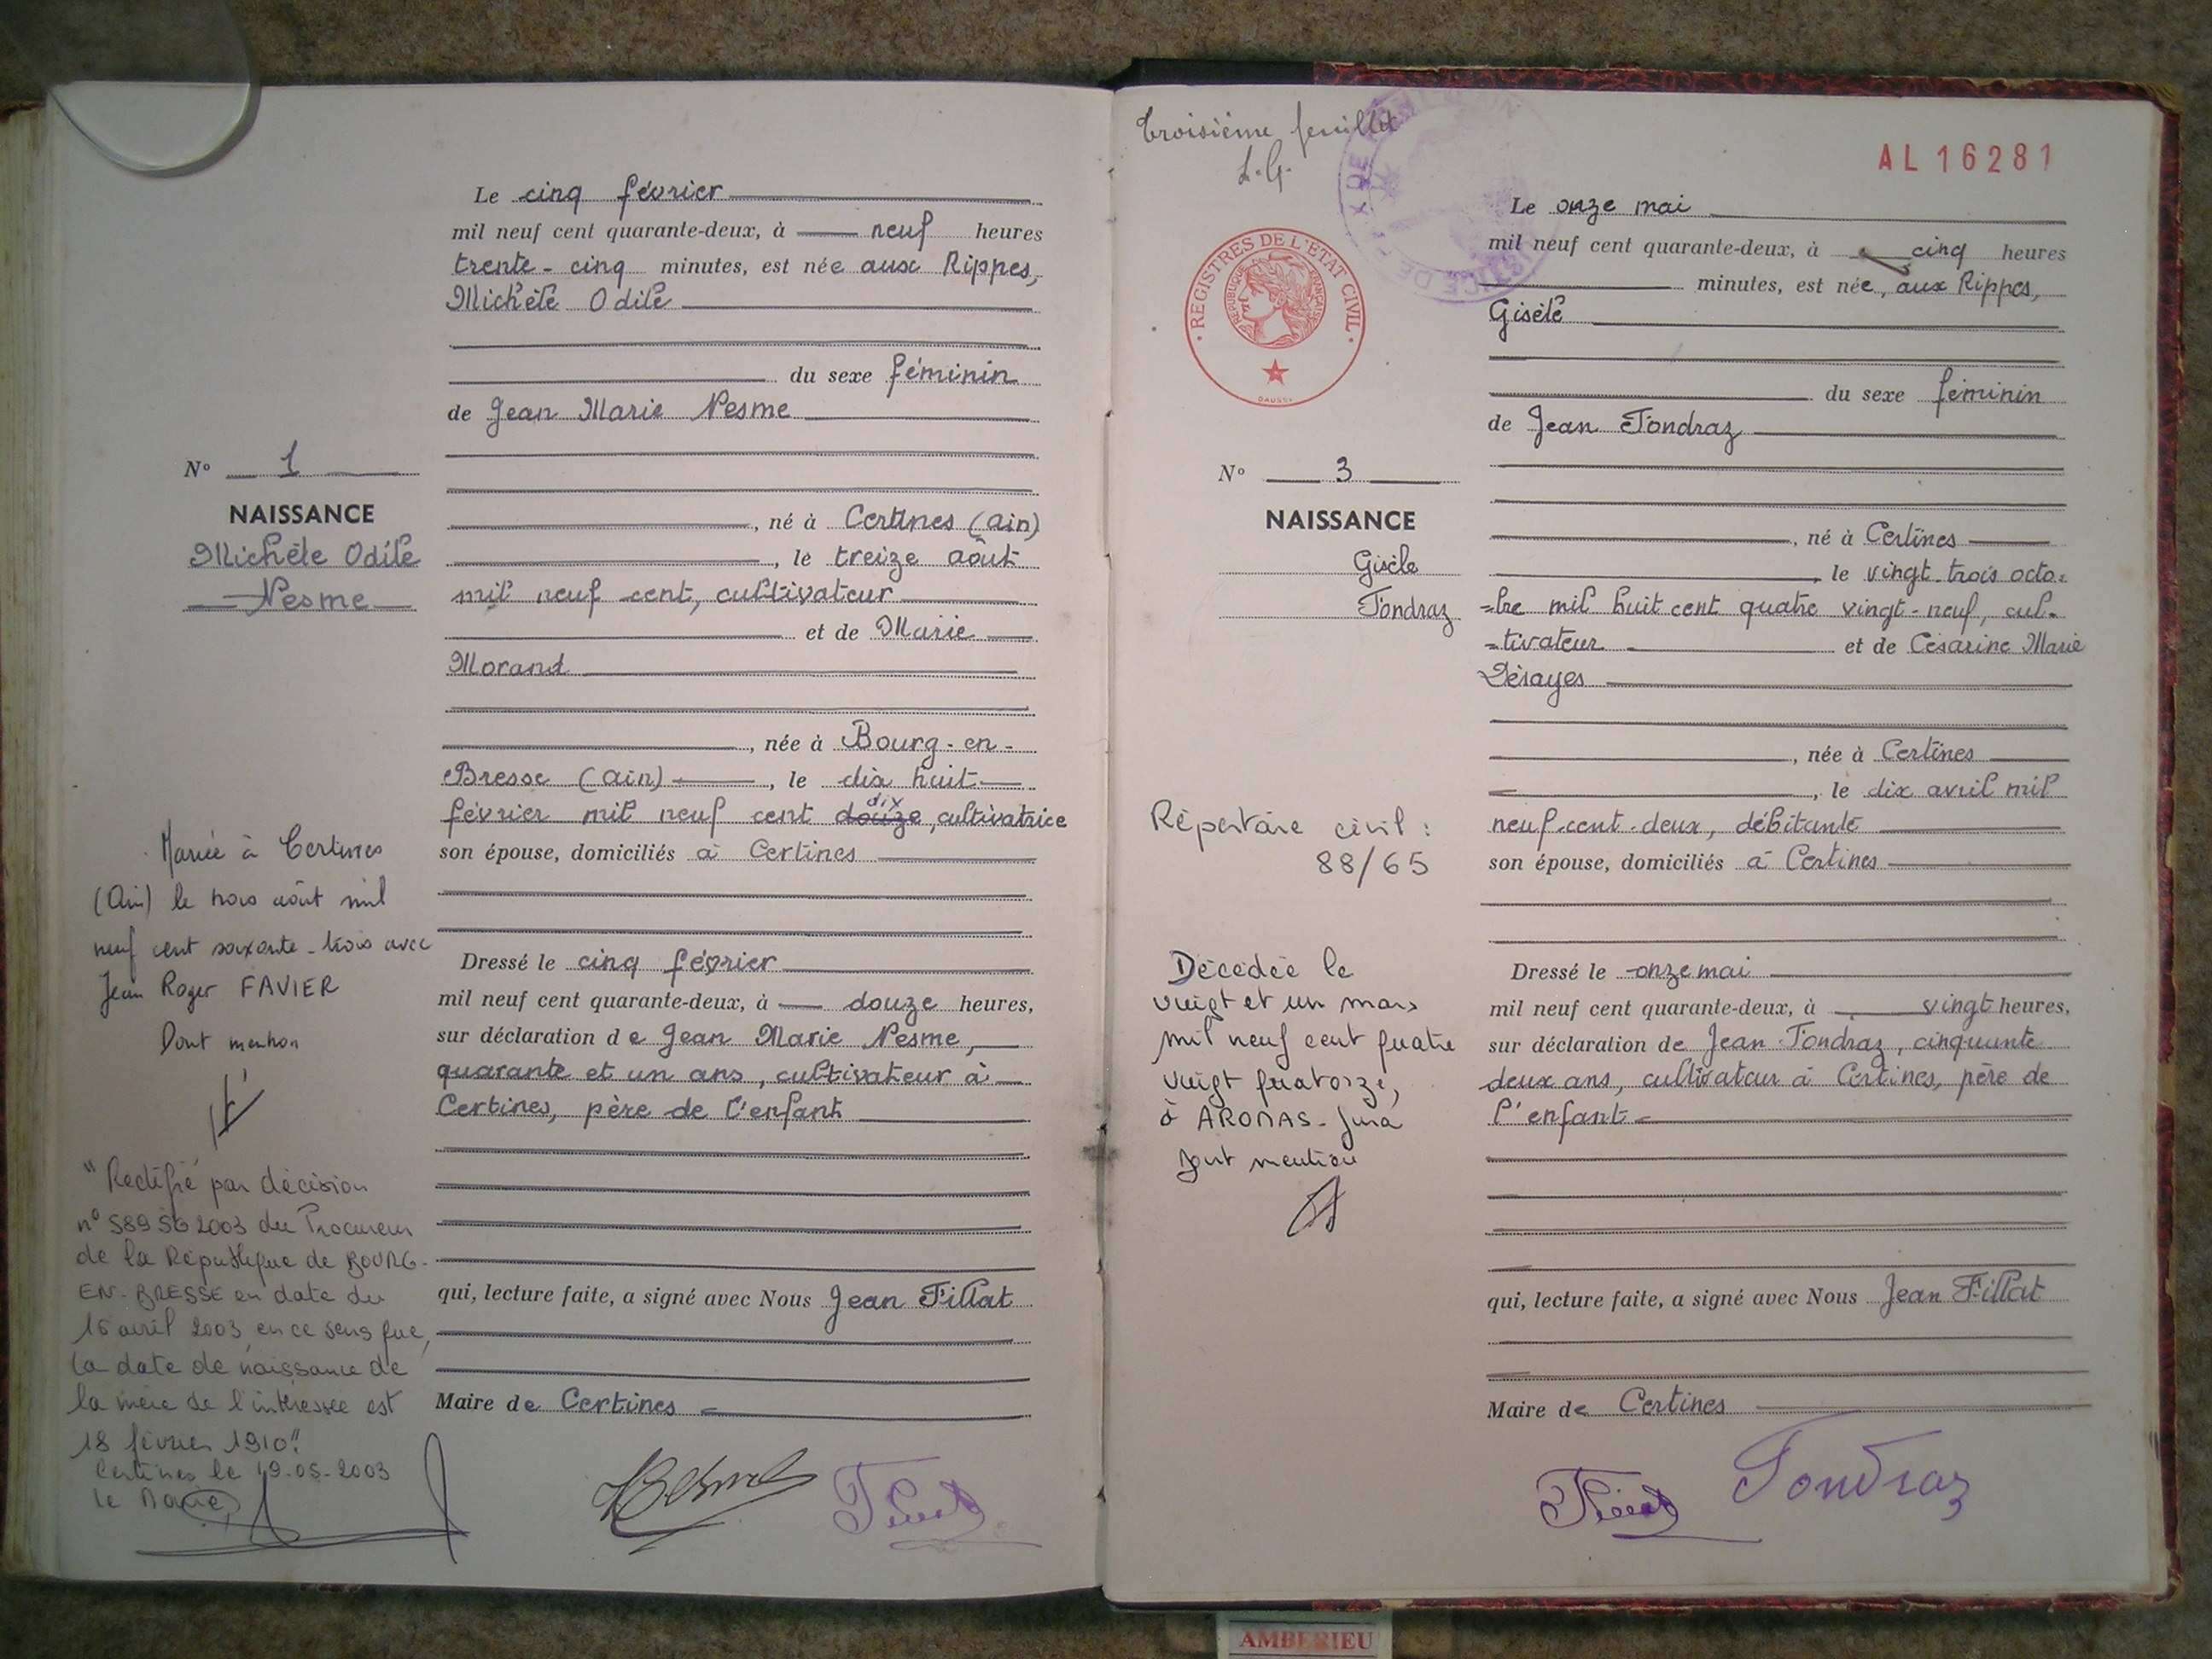 Le cinq février
mil neuf cent quarante-deux, à neuf heures
trente-cinq minutes, est née aux Rippes,
Michèle Odile
du sexe féminin
de Jean Marie Nesme
N° 1
NAISSANCE
Michèle Odile
Nesme
, né à Certines (Ain)
, le treize août
mil neuf cent, cultivateur
et de Marie
Morand
, née à Bourg-en-
Bresse (Ain) , le dix huit
dix
février mil neuf cent douze, cultivatrice
son épouse, domiciliés à Certines
Dressé le cinq février
mil neuf cent quarante-deux, à douze heures,
sur déclaration de Jean Marie Nesme,
quarante et un ans, cultivateur à
Certines, père de l'enfant
qui, lecture faite, a signé avec Nous Jean Fillat
Maire de Certines
Mariée à Certines
(Ain) le trois août mil
neuf cent soixante-trois avec
Jean Roger FAVIER
Dont mention
"Rectifié par décision
n° 589 SG 2003 du Procureur
de la République de BOURG-
EN-BRESSE en date du
16 avril 2003, en ce sens que,
la date de naissance de
la mère de l'intéressée est
18 février 1910".
Certines le 19-05-2003
le Maire
Troisième feuillet
L.G.
AL 16281
REGISTRES DE L'ETAT CIVIL
REPUBLIQUE FRANÇAISE
Le onze mai
mil neuf cent quarante-deux, à cinq heures
minutes, est née, aux Rippes,
Gisèle
du sexe féminin
de Jean Tondraz
N° 3
NAISSANCE
Gisèle
Tondraz
, né à Certines
le vingt-trois octo-
-bre mil huit cent quatre vingt-neuf, cul-
-tivateur et de Césarine Marie
Désayes
, née à Certines
, le dix avril mil
neuf cent deux, débitante
son épouse, domiciliés à Certines
Répertoire civil :
88/65
Décédée le
vingt et un mars
mil neuf cent quatre
vingt quatorze,
à AROMAS-Jura
Dont mention
Dressé le onze mai
mil neuf cent quarante-deux, à vingt heures,
sur déclaration de Jean Tondraz, cinquante
deux ans, cultivateur à Certines, père de
l'enfant
qui, lecture faite, a signé avec Nous Jean Fillat
Maire de Certines
Tondraz
AMBERIEU